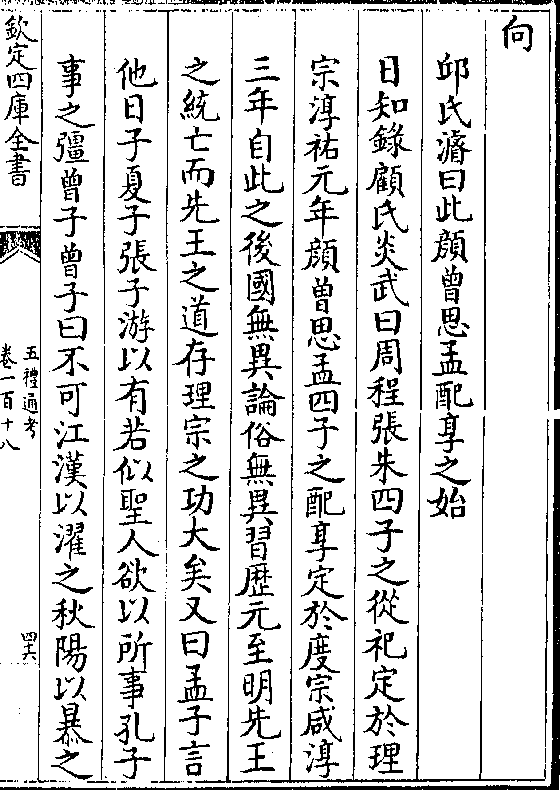 向
邱氏濬曰此顔曾思孟配享之始
日知錄顧氏炎武曰周程張朱四子之從祀定於理
宗淳祐元年顔曾思孟四子之配享定於度宗咸淳
三年自此之後國無異論俗無異習歴元至明先王
之統亡而先王之道存理宗之功大矣又曰孟子言
他日子夏子張子游以有若似聖人欲以所事孔子
事之彊曾子曾子曰不可江漢以濯之秋陽以暴之
欽定四庫全書
五禮通考
卷一百十八
四六